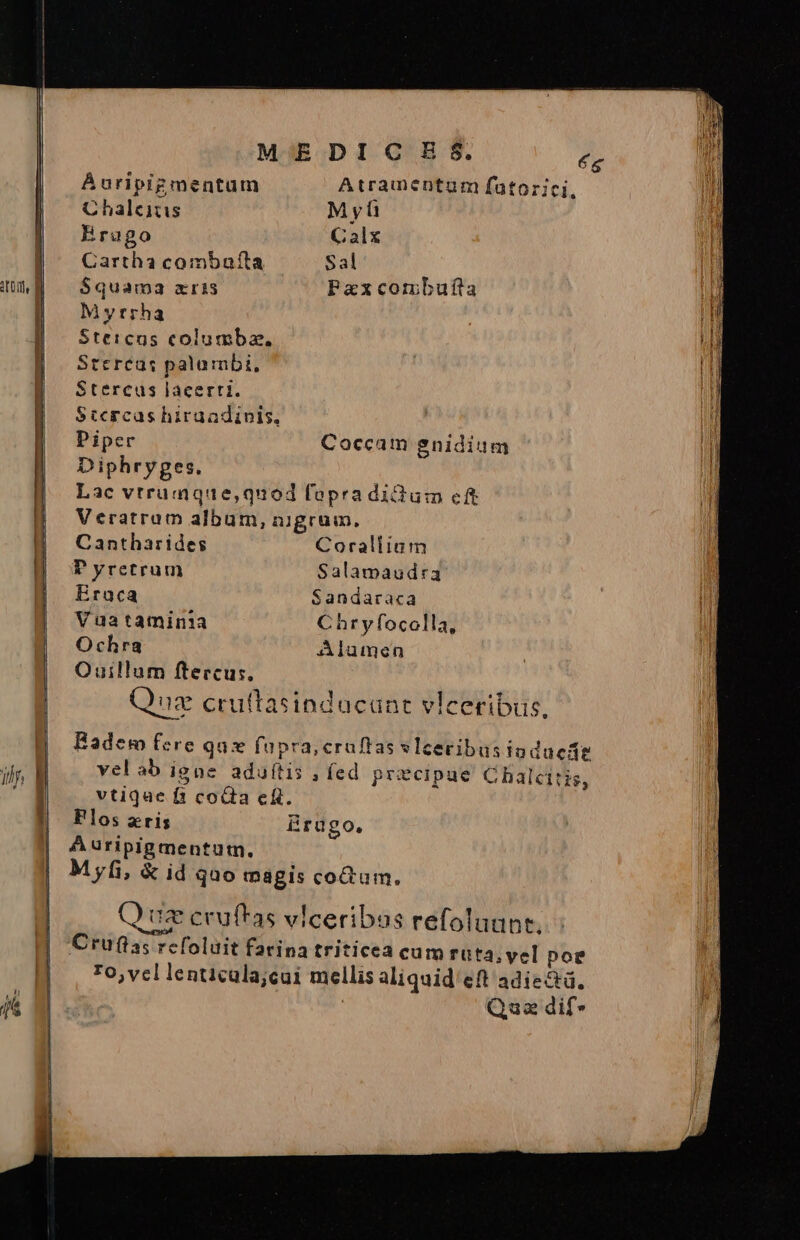 MEDICES. 65
Auripigmentum Atramentum ſutorici,
Chalcitis Myſi
Erugo Calx
Cartha combuſta Sal
Squama æris Fæx combuſta
Myrrha
Stercus columbæ,
Stercus palumbi,
Stercus lacerti.
Stercus hirundinis,
Piper Coccum gnidium
Diphryges.
Lac vtrumque, quod ſupra dictum eſt
Veratrum album, nigrum.
Cantharides Corallium
Pyretrum Salamandra
Eruca Sandaraca
Vua taminia Chryſocolla,
Ochra Alumen
Ouillum ſtercus.
Quæ cruſtas inducunt vlceribus,
Eadem fere quæ ſupra, cruſtas vlceribus inducũt
vel ab igne aduſtis, ſed præcipue Chalcitis,
vtique ſi cocta eſt.
Flos æris Erugo.
Auripigmentum.
Myſi, & id quo magis coctum.
Quæ cruſtas vlceribus reſoluunt.
Cruſtas reſoluit farina triticea cum ruta, vel por
ro, vel lenticula; cui mellis aliquid eſt adiectũ.
Quæ diſ-